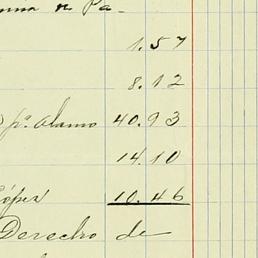 de Pa-
1.57
8.12
pª. Alamo 40.93
14.10
López 10.46
Derecho de